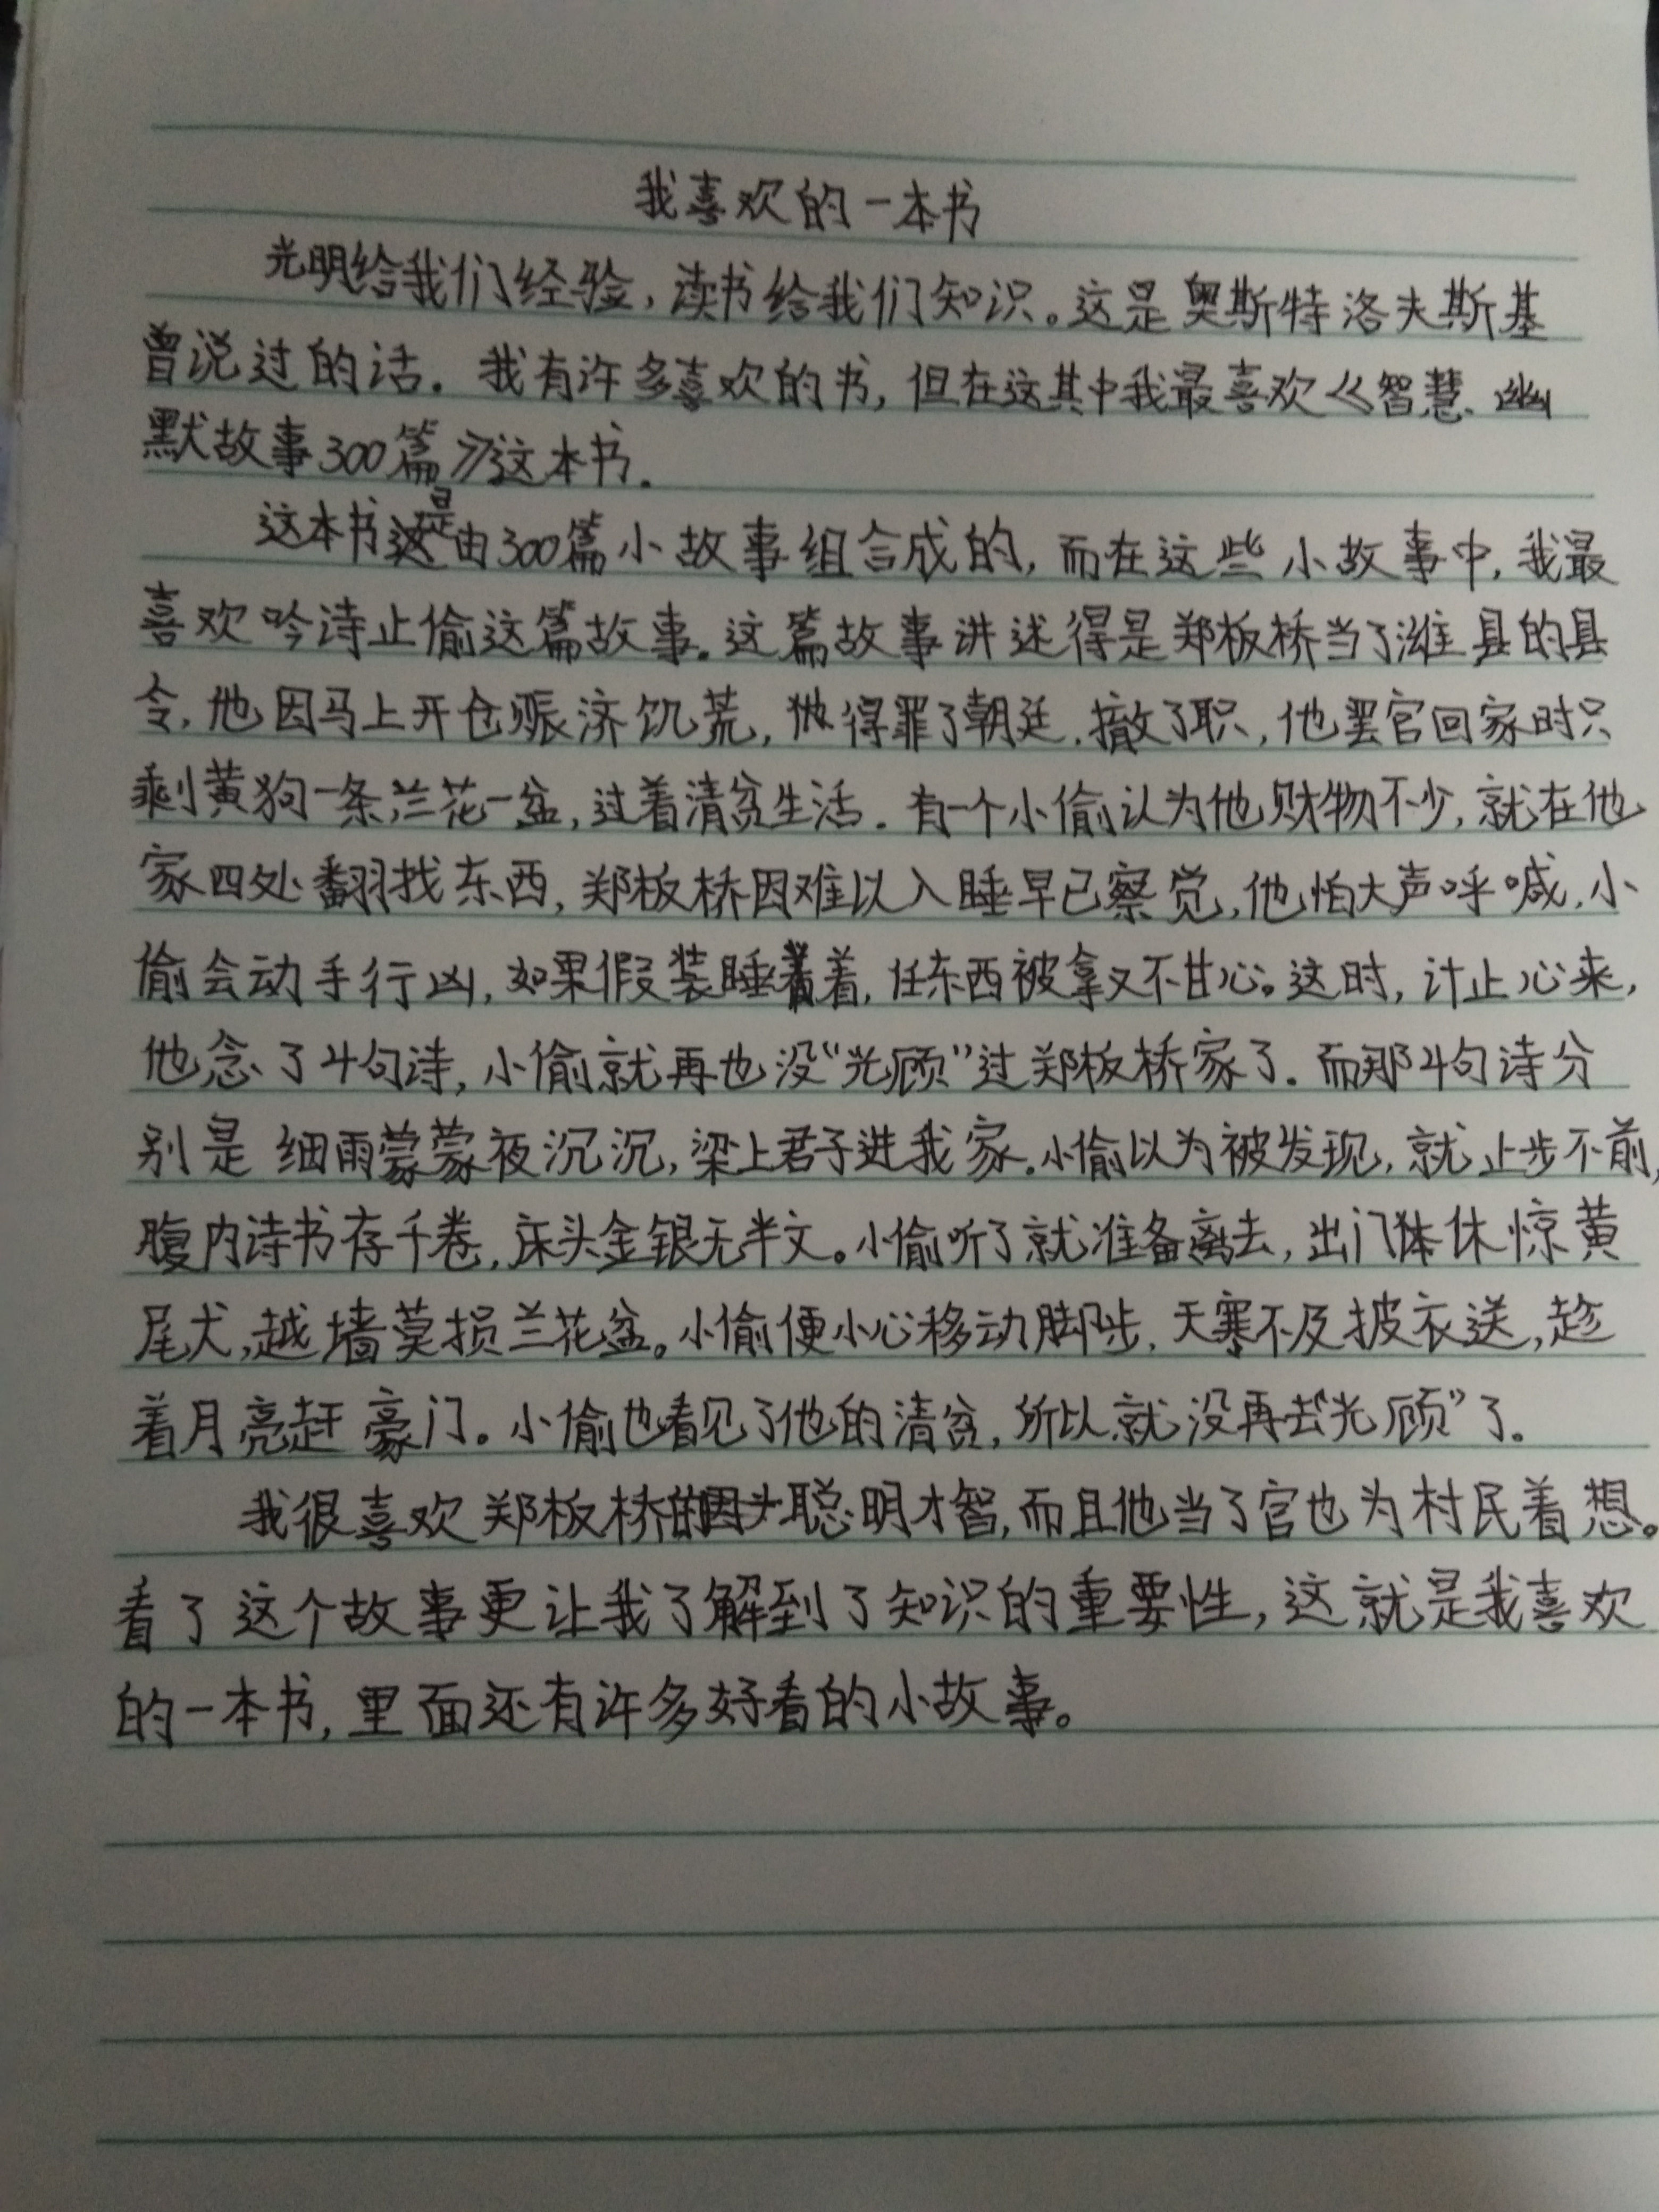 我喜欢的一本书
光明给我们经验,读书给我们知识。这是奥斯特洛夫斯基
曾说过的话。我有许多喜欢的书,但在这其中我最喜欢《智慧、幽
默故事300篇》这本书.
这本书是由300篇小故事组合成的,而在这些小故事中,我最
喜欢吟诗止偷这篇故事。这篇故事讲述得是郑板桥当了潍县的县
令,他因马上开仓赈济饥荒,得罪了朝廷.撤了职,他罢官回家时只
剩黄狗一条,兰花一盆,过着清贫生活.有一个小偷认为他财物不少,就在他
家四处翻找东西,郑板桥因难以入睡早已察觉,他怕大声呼喊,小
偷会动手行凶,如果假装睡着,任东西被拿又不甘心。这时,计止心来,
他念了4句诗,小偷就再也没“光顾”过郑板桥家了.而那4句诗分
别是细雨蒙蒙夜沉沉,梁上君子进我家.小偷以为被发现,就止步不前,
腹内诗书存千卷,床头金银无半文。小偷听了就准备离去,出门休惊黄
尾犬,越墙莫损兰花盆。小偷便小心移动脚步,天寒不及披衣送,趁
着月亮赶豪门。小偷也看见了他的清贫,所以就没再去“光顾”了.
我很喜欢郑板桥的聪明才智,而且他当了官也为村民着想。
看了这个故事更让我了解到了知识的重要性,这就是我喜欢
的一本书,里面还有许多好看的小故事。